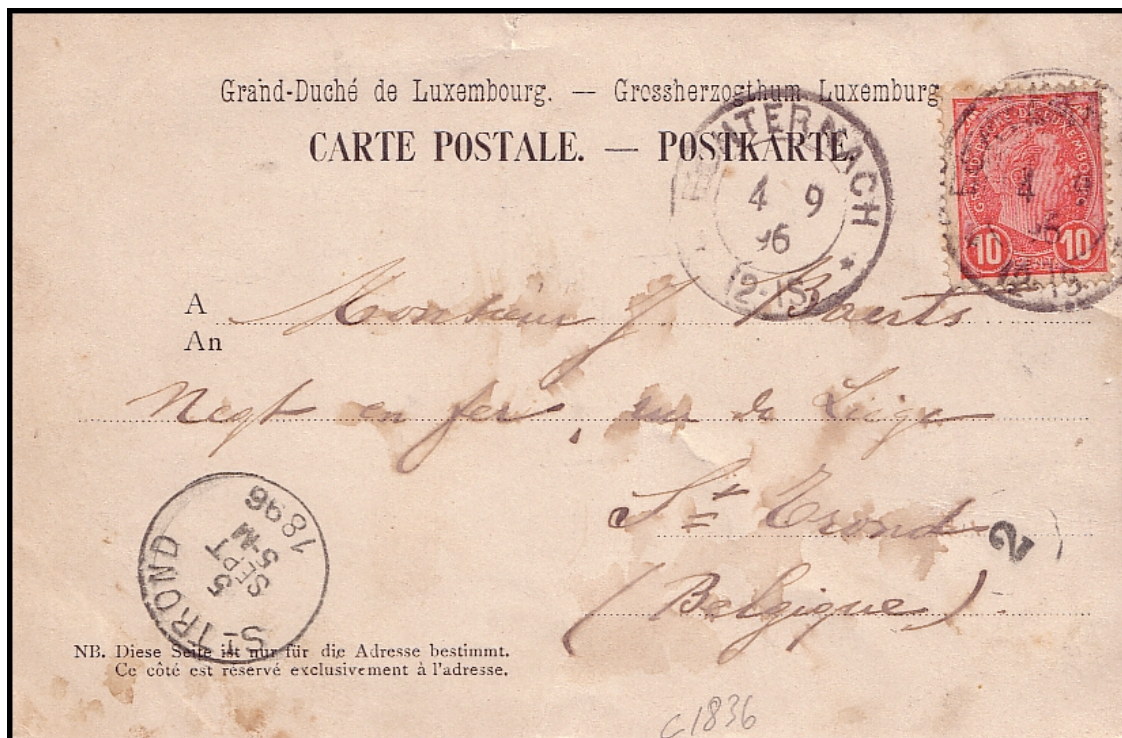 Grand-Duché de Luxembourg. — Grossherzogthum Luxemburg
CARTE POSTALE. — POSTKARTE.
ECHTERNACH
4 9
96
12-1S
GRAND DUCHÉ DE LUXEMBOURG
10 CENTIMES 10
4 9
96
12-1S
A Monsieur J. Baerts
An
Negt en fer, rue de Liége
St Trond
(Belgique)
2
ST-TROND
5
SEPT
5-M
1896
NB. Diese Seite ist nur für die Adresse bestimmt.
Ce côté est réservé exclusivement à l'adresse.
c1836